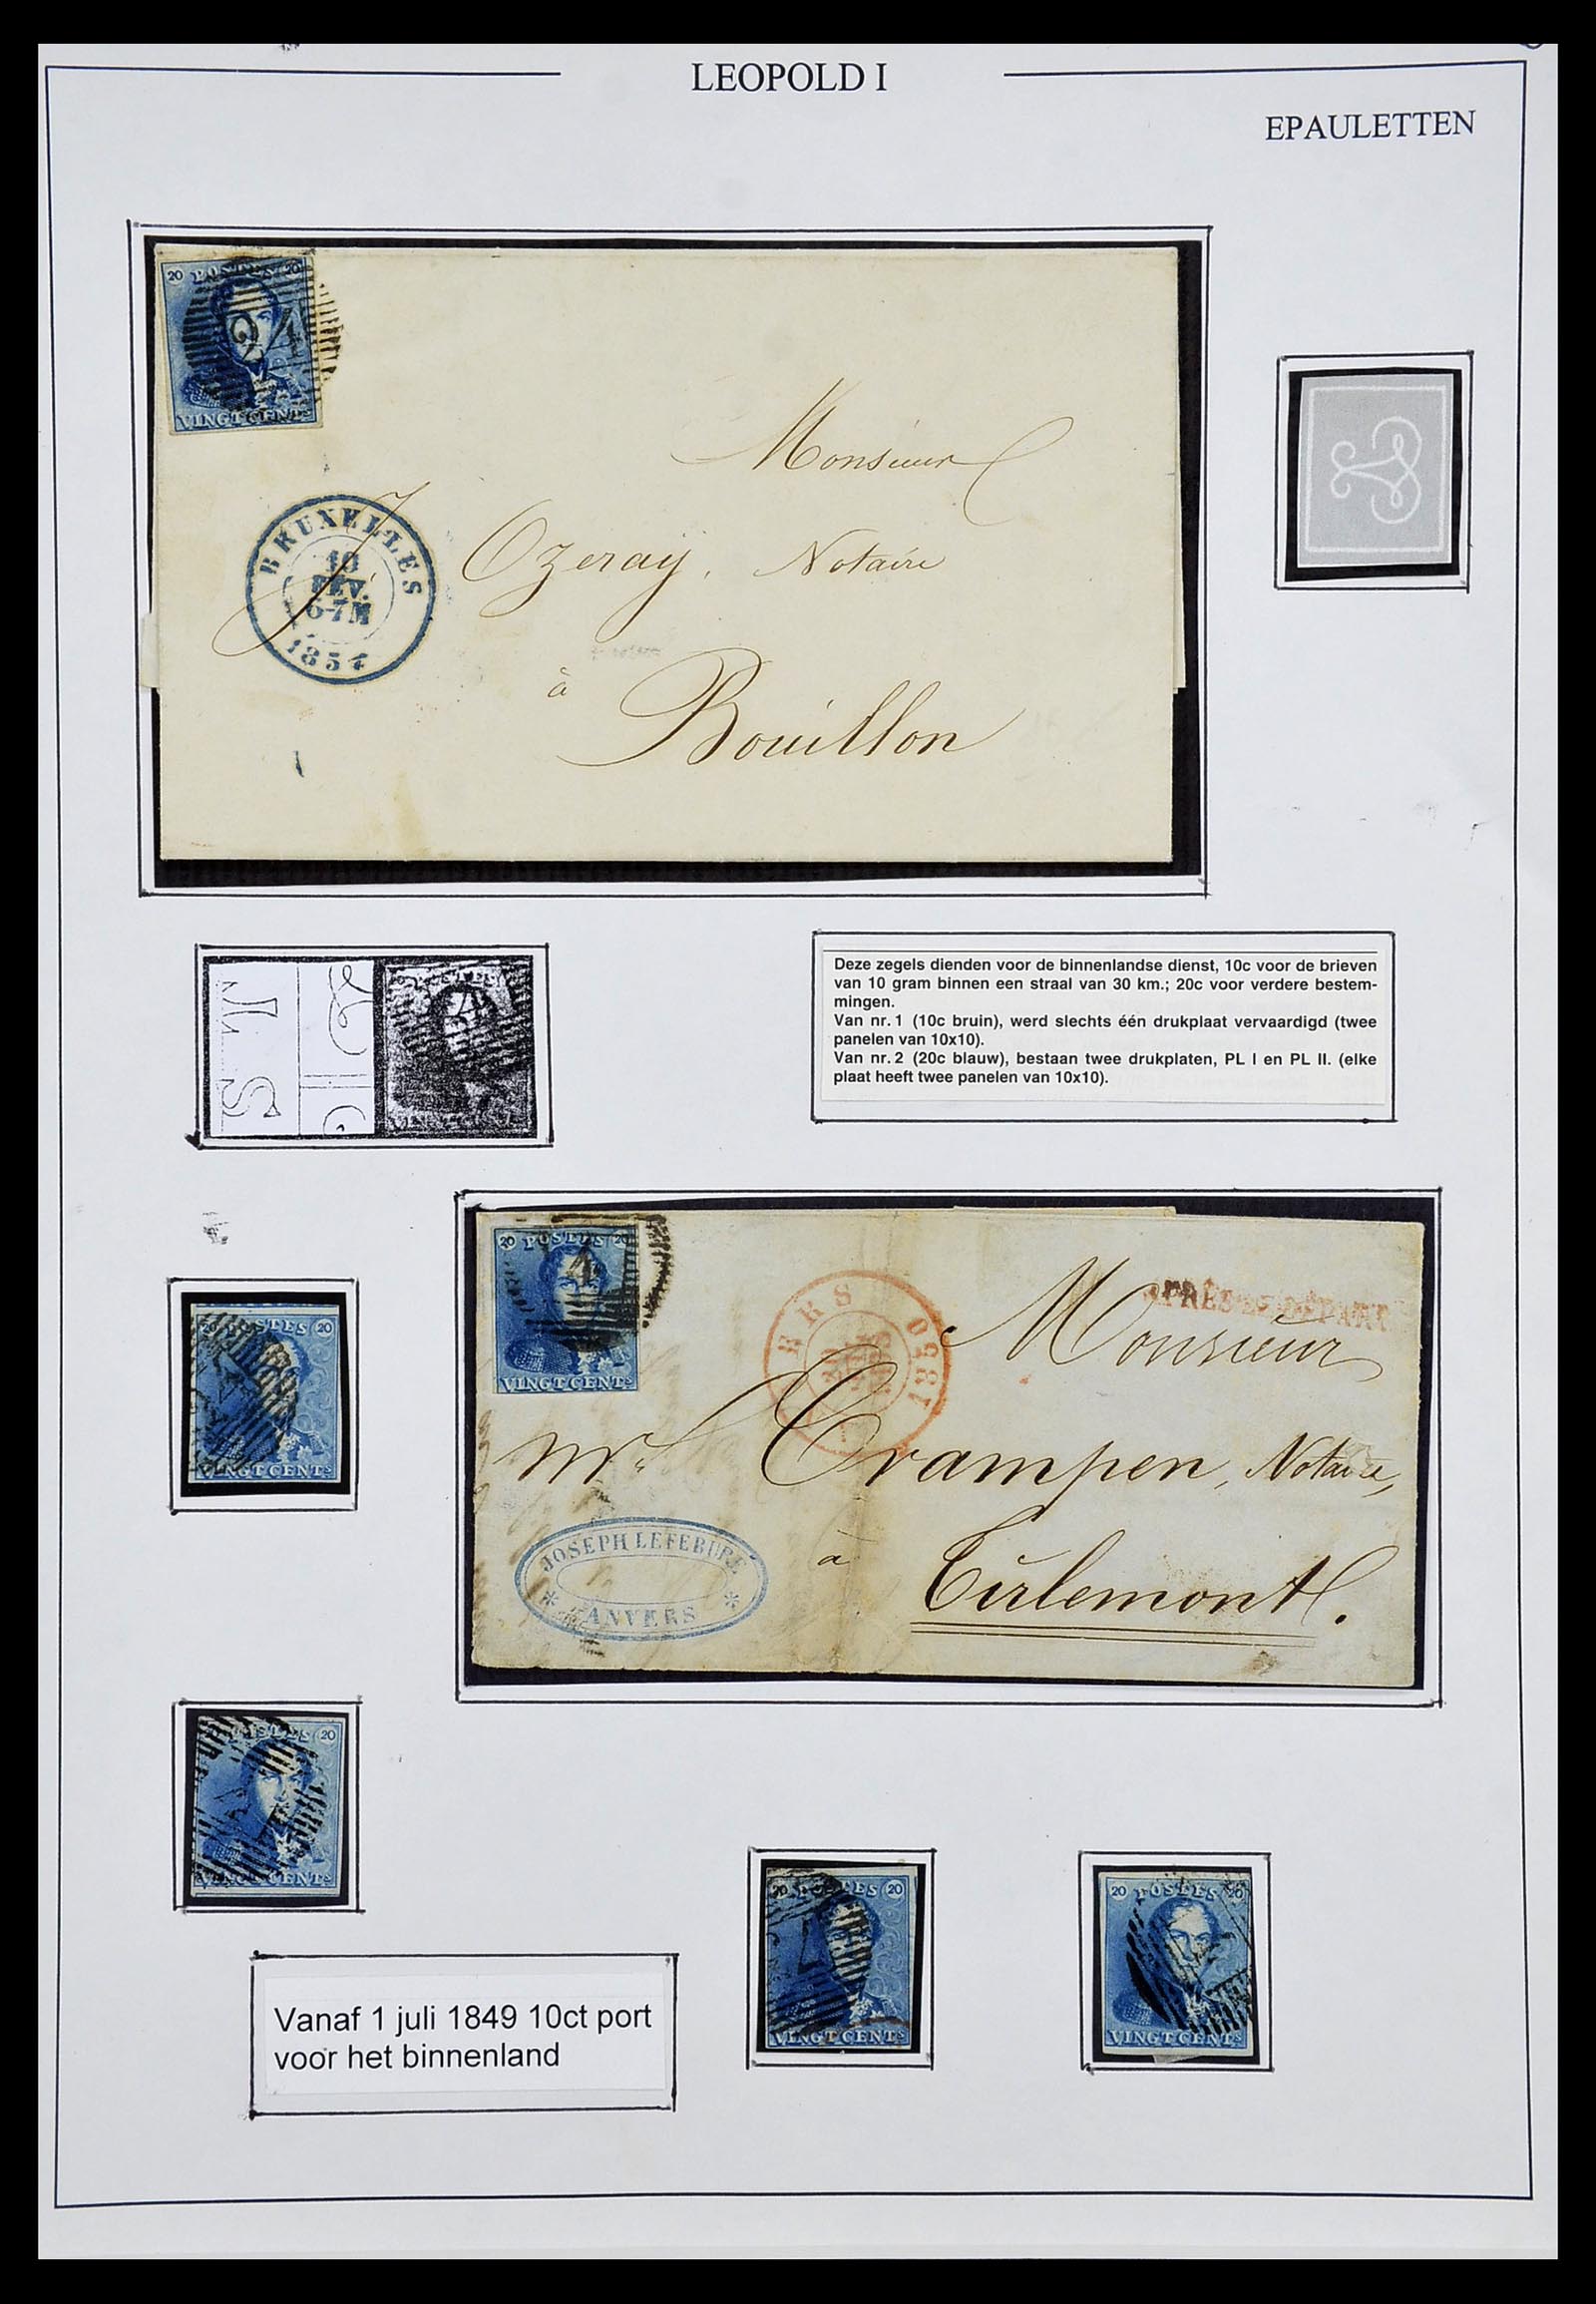 LEOPOLD I
EPAULETTEN
20 POSTES 20
24
VINGT CENTS
Monsieur
Ozeray, Notaire
à
Bouillon
BRUXELLES
FEV.
6-7M
1854
Deze zegels dienden voor de binnenlandse dienst, 10c voor de brieven
van 10 gram binnen een straal van 30 km.; 20c voor verdere bestem-
mingen.
Van nr. 1 (10c bruin), werd slechts één drukplaat vervaardigd (twee
panelen van 10x10).
Van nr. 2 (20c blauw), bestaan twee drukplaten, PL I en PL II. (elke
plaat heeft twee panelen van 10x10).
20 POSTES 20
4
VINGT CENTS
1850
APRES LE DEPART
Monsieur
Crampen, Notaire,
à
Tirlemont.
JOSEPH LEFEBURE
* ANVERS *
POSTES 20
VINGT CENTS
POSTES 20
VINGT CENTS
20 POSTES 20
VINGT CENTS
20 POSTES 20
VINGT CENTS
Vanaf 1 juli 1849 10ct port
voor het binnenland